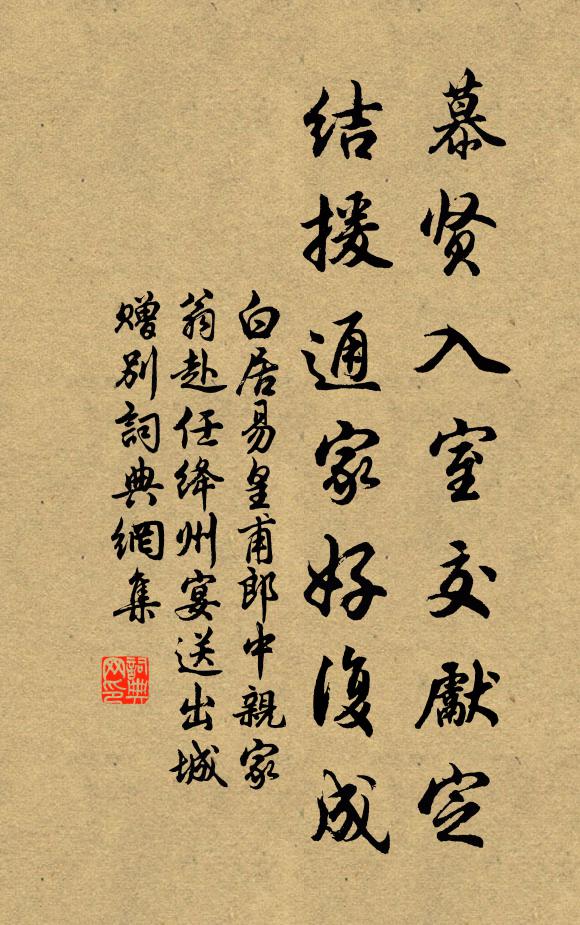 慕贤入室交獻定
结援通家好復成
白居易皇甫郎中親家
翁赴任绛州宴送出城
赠别詞典網集
詞典网印